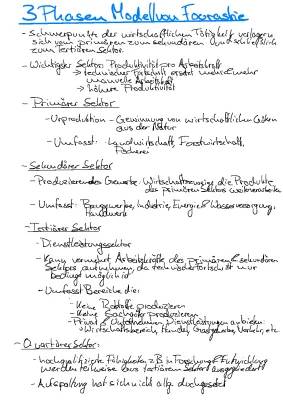 3 Phasen Modell von Fourastie
- Schwerpunkte der wirtschaftlichen Tätigkeit verlagern
sich vom primären zum sekundären und schließlich
zum tertiären Sektor.
- Wichtigster Sektor: Produktivität pro Arbeitskraft
→ technischer Fortschritt ersetzt mehr & mehr
manuelle Arbeitskraft
→ höhere Produktivität
- Primärer Sektor
- Urproduktion - Gewinnung von wirtschaftlichen Gütern
aus der Natur
- Umfasst: Landwirtschaft, Forstwirtschaft,
Fischerei
- Sekundärer Sektor
- Produzierendes Gewerbe: Wirtschaftszweige die Produkte
des primären Sektors weiterverarbeiten
- Umfasst: Baugewerbe, Industrie, Energie & Wasserversorgung,
Handwerk
- Tertiärer Sektor
- Dienstleistungssektor
- Kann vermehrt Arbeitskräfte des primären & sekundären
Sektors aufnehmen, da technischer Fortschritt nur
bedingt möglich ist
- Umfasst Bereiche die:
- Keine Rohstoffe produzieren
- Keine Sachgüter produzieren
- Privat & Unternehmen Dienstleistungen anbieten
→ Wirtschaftsbereich, Handel, Gastgewerbe, Verkehr, etc.
- Quartärer Sektor:
- hochqualifizierte Fähigkeiten z.B in Forschung & Entwicklung
werden teilweise aus tertiärem Sektor ausgegliedert
- Aufspaltung hat sich nicht allg. durchgesetzt